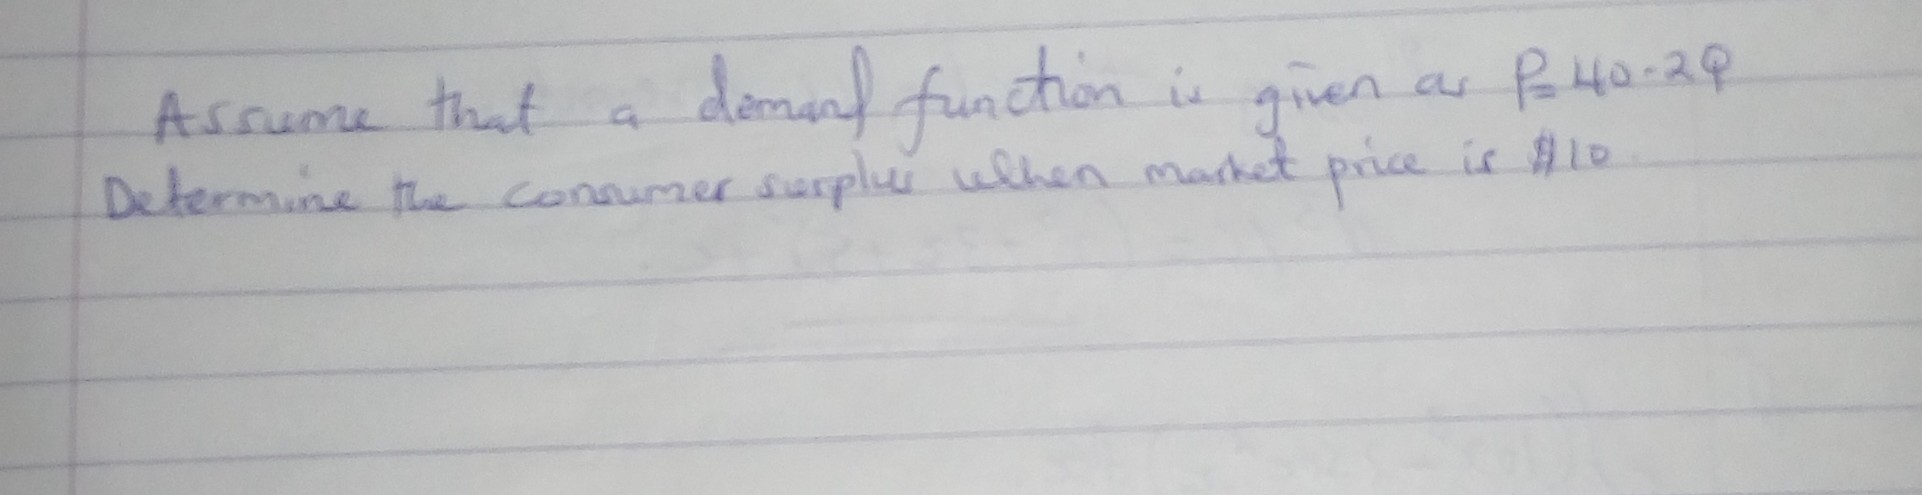 Assume that a demand function is given as P=40-2Q
Determine the consumer surplus when market price is $10.